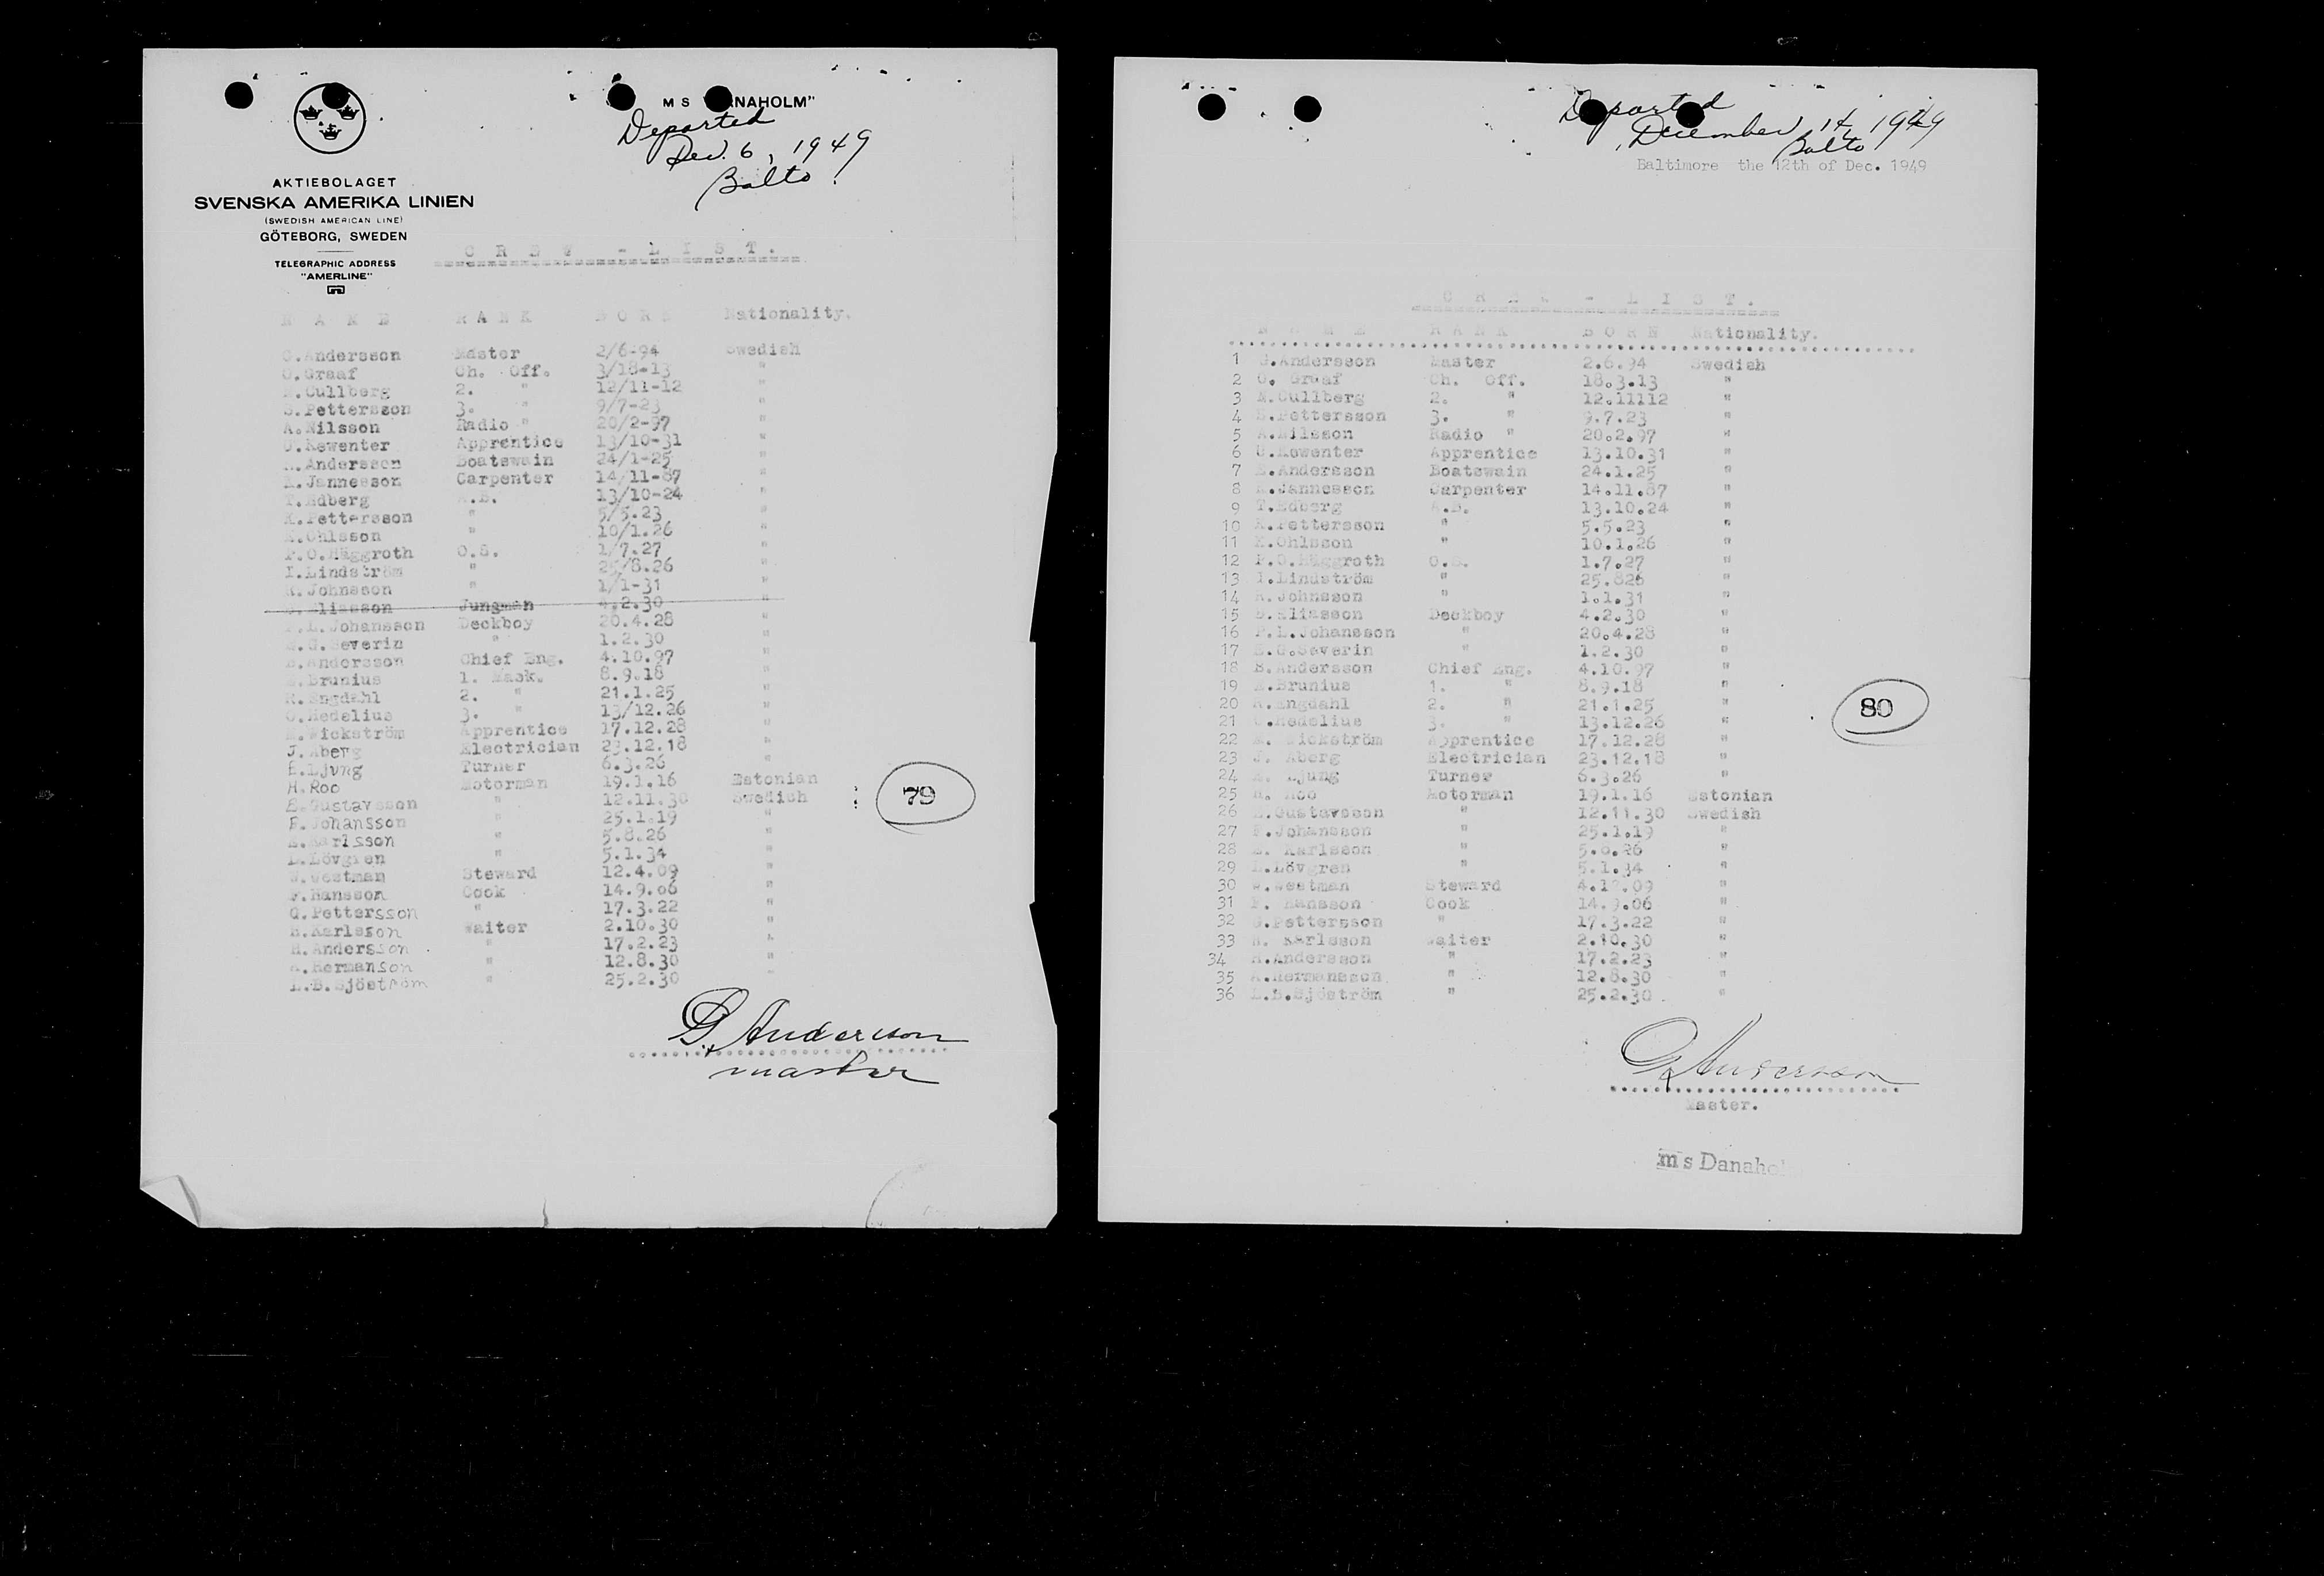 M S "  NAHOLM"
Departed
Dec. 6, 1949
Balto.
AKTIEBOLAGET
SVENSKA AMERIKA LINIEN
(SWEDISH AMERICAN LINE)
GÖTEBORG, SWEDEN
TELEGRAPHIC ADDRESS
"AMERLINE"
C R E W - L I S T.
N A M E R A N K B O R N Nationality.
G.Andersson Master 2/6-94 Swedish
O.Graaf Ch. Off. 3/18-13 "
N.Cullberg 2. " 12/11-12 "
S.Pettersson 3. " 9/7-23 "
A.Nilsson Radio " 20/2-97 "
U.Kewenter Apprentice 13/10-31 "
Andersson Boatswain 24/1-25 "
Jannesson Carpenter 14/11-87 "
T.Edberg A.B. 13/10-24 "
K.Pettersson " 5/5.23 "
K.Ohlsson " 10/1.26 "
P.O.Häggroth O.S. 1/7.27 "
I.Lindström " 25/8.26 "
K.Johnsson " 1/1-31 "
Eliasson Jungman 4.2.30 "
P.L.Johansson Deckboy 20.4.28 "
G.Severin " 1.2.30 "
B.Andersson Chief Eng. 4.10.97 "
Brunius 1. Mask. 8.9.18 "
K.Engdahl 2. " 21.1.25 "
C.Hedelius 3. " 13/12.26 "
Wickström Apprentice 17.12.28 "
J.Åberg Electrician 23.12.18 "
E.Ljung Turner 6.3.26 "
H.Roo Motorman 19.1.16 Estonian
B.Gustavsson " 12.11.30 Swedish
F.Johansson " 25.1.19 "
E.Karlsson " 5.8.26 "
L.Lövgren " 5.1.34 "
W.Westman Steward 12.4.09 "
F.Hansson Cook 14.9.06 "
G.Pettersson " 17.3.22 "
H.Karlsson Waiter 2.10.30 "
H.Andersson " 17.2.23 "
A.Hermanson " 12.8.30 "
L.B.Sjöström " 25.2.30 "
79
G. Andersson
master
Departed
December 14, 1949
Balto
Baltimore the 12th of Dec. 1949
C R E W - L I S T.
N A M E R A N K B O R N Nationality.
1 G.Andersson Master 2.6.94 Swedish
2 O. Graaf Ch. Off. 18.3.13 "
3 N.Cullberg 2. " 12.11112 "
4 S.Pettersson 3. " 9.7.23 "
5 A.Nilsson Radio " 20.2.97 "
6 U.Kewenter Apprentice 13.10.31 "
7 Andersson Boatswain 24.1.25 "
8 Jannesson Carpenter 14.11.87 "
9 T.Edberg A.B. 13.10.24 "
10 K.Pettersson " 5.5.23 "
11 K.Ohlsson " 10.1.26 "
12 P.O.Häggroth O.S. 1.7.27 "
13 I.Lindström " 25.826 "
14 K.Johnsson " 1.1.31 "
15 Eliasson Deckboy 4.2.30 "
16 P.L.Johansson " 20.4.28 "
17 G.Severin " 1.2.30 "
18 B.Andersson Chief Eng. 4.10.97 "
19 Brunius 1. " 8.9.18 "
20 K.Engdahl 2. " 21.1.25 "
21 C.Hedelius 3. " 13.12.26 "
22 Wickström Apprentice 17.12.28 "
23 J. Åberg Electrician 23.12.18 "
24 E. Ljung Turner 6.3.26 "
25 H. Roo Motorman 19.1.16 Estonian
26 B.Gustavsson " 12.11.30 Swedish
27 F.Johansson " 25.1.19 "
28 E. Karlsson " 5.8.26 "
29 L.Lövgren " 5.1.34 "
30 W.Westman Steward 4.12.09 "
31 F. Hansson Cook 14.9.06 "
32 G.Pettersson " 17.3.22 "
33 H. Karlsson Waiter 2.10.30 "
34 H.Andersson " 17.2.23 "
35 A.Hermansson " 12.8.30 "
36 L.B.Sjöström " 25.2.30 "
80
G. Andersson
Master.
m s Danahol